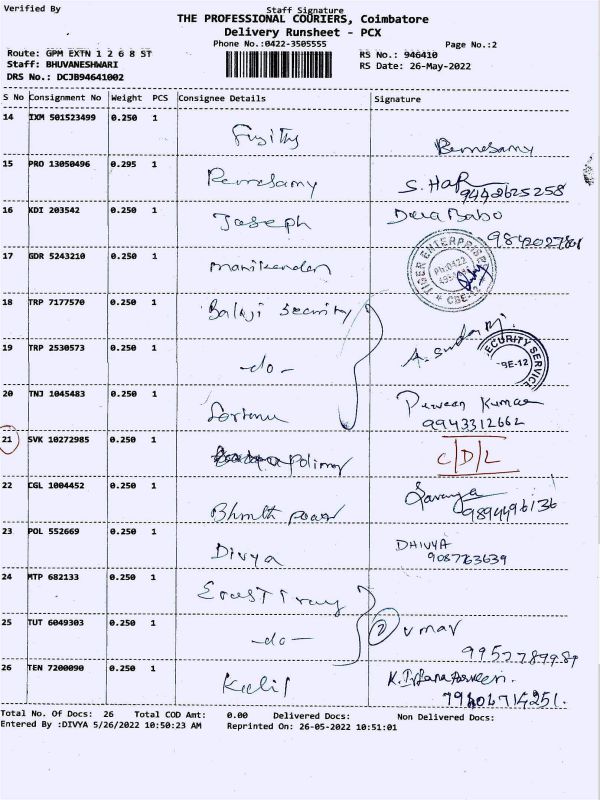 Verified By Staff Signature
THE PROFESSIONAL COURIERS, Coimbatore
Delivery Runsheet - PCX
Phone No.:0422-3505555 Page No.:2
Route: GPM EXTN 1 2 6 8 ST RS No.: 946410
Staff: BHUVANESHWARI RS Date: 26-May-2022
DRS No.: DCJB94641002
S No Consignment No Weight PCS Consignee Details Signature
14 IXM 501523499 0.250 1
15 PRO 13050496 0.295 1 Ramasamy S. Hari 9442625258
16 KDI 203542 0.250 1 Joseph Deva Babo
17 GDR 5243210 0.250 1 Manikandan TIGER ENTERPRISE Ph:0422 CBE-
18 TRP 7177570 0.250 1 Balaji Security
19 TRP 2530573 0.250 1 -do- SECURITY SERVICE
20 TNJ 1045483 0.250 1 Praveen Kumar
9943312662
21 SVK 10272985 0.250 1 C/D/L
22 CGL 1004452 0.250 1 Saranya
9894496136
23 POL 552669 0.250 1 Divya DHIVYA
9087763639
24 MTP 682133 0.250 1
25 TUT 6049303 0.250 1 -do- 2 Umar
26 TEN 7200090 0.250 1
Total No. Of Docs: 26 Total COD Amt: 0.00 Delivered Docs: Non Delivered Docs:
Entered By :DIVYA 5/26/2022 10:50:23 AM Reprinted On: 26-05-2022 10:51:01